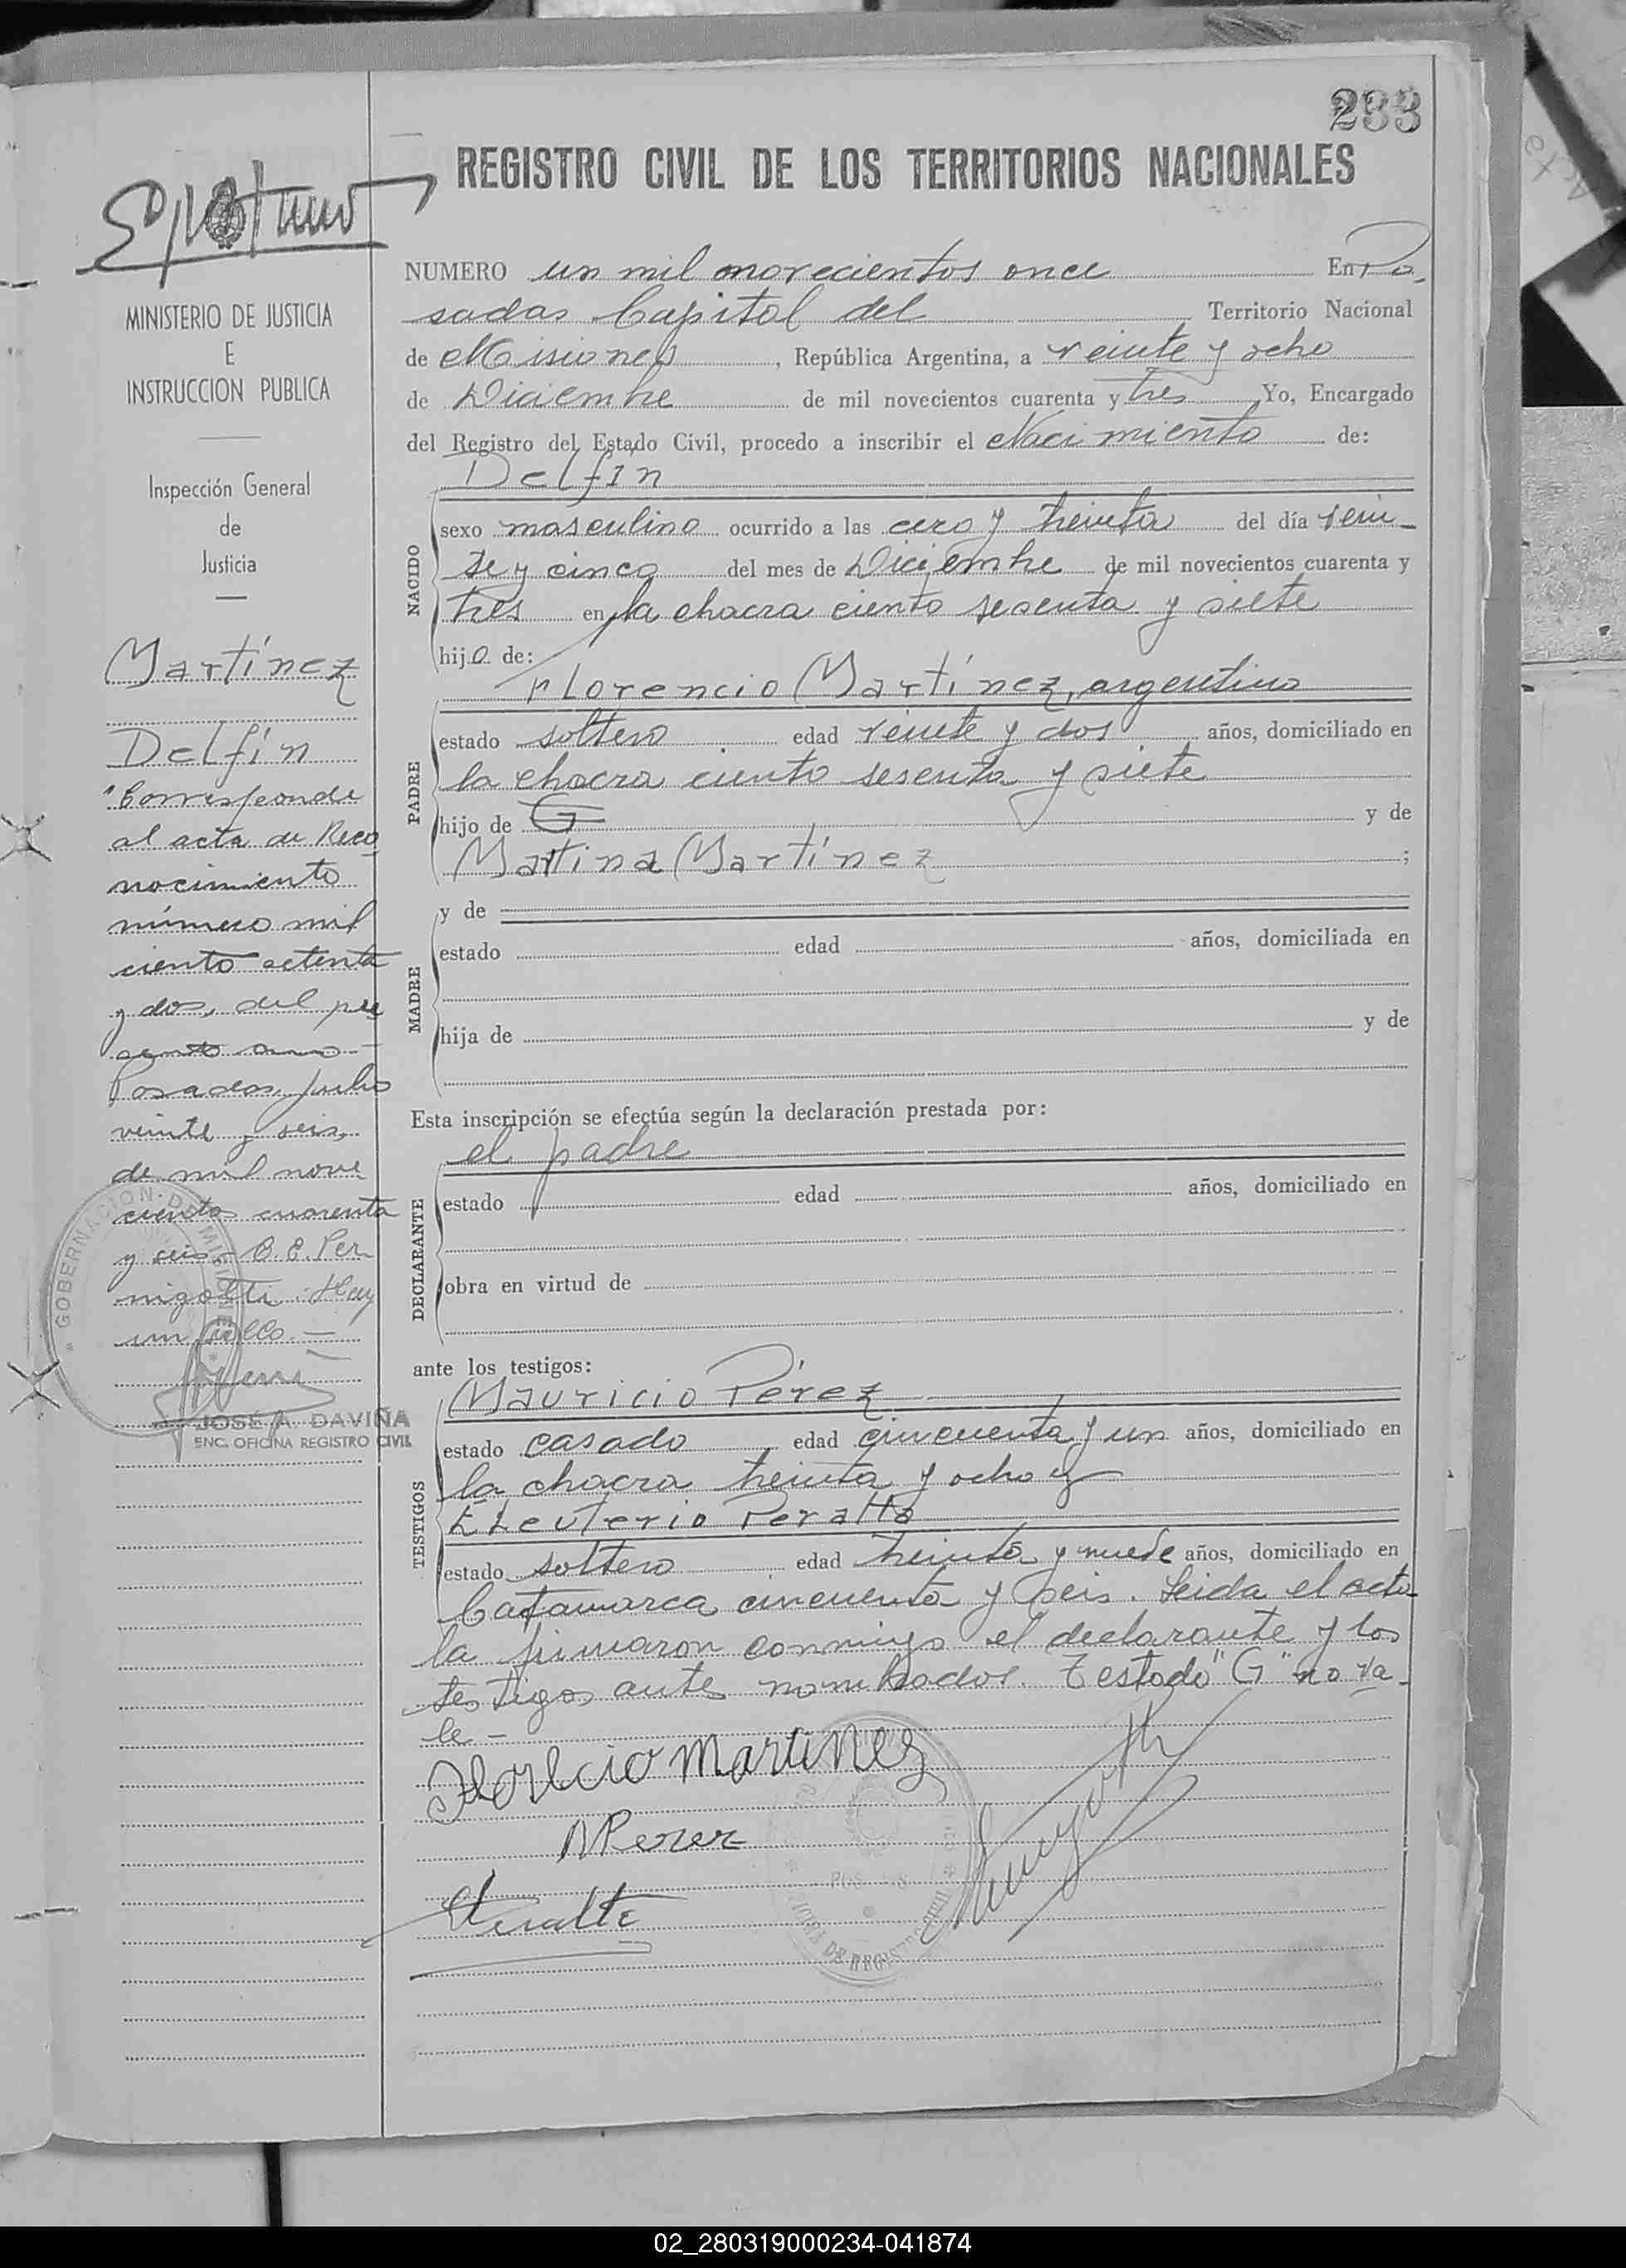 233
REGISTRO CIVIL DE LOS TERRITORIOS NACIONALES
MINISTERIO DE JUSTICIA
E
INSTRUCCION PUBLICA
Inspección General
de
Justicia
Martínez
Delfín
"Corresponde
al acta de Reco
nocimiento
número mil
ciento setenta
y dos, del pre
sente año -
Posadas, julio
veinte y seis,
de mil nove
cientos cuarenta
y seis - B. E. Per
nigotti. Hay
un sello. -
GOBERNACION DE MISIONES
JOSE A. DAVIÑA
ENC. OFICINA REGISTRO CIVIL
NUMERO un mil novecientos once En Po-
sadas Capital del Territorio Nacional
de Misiones, República Argentina, a veinte y ocho
de Diciembre de mil novecientos cuarenta y tres Yo, Encargado
del Registro del Estado Civil, procedo a inscribir el Nacimiento de:
NACIDO
Delfín
sexo masculino ocurrido a las cero y treinta del día vein-
te y cinco del mes de Diciembre de mil novecientos cuarenta y
tres en la chacra ciento sesenta y siete
hijo de:
PADRE
Florencio Martínez, argentino
estado soltero edad veinte y dos años, domiciliado en
la chacra ciento sesenta y siete
hijo de G y de
Martina Martínez ;
MADRE
y de
estado edad años, domiciliada en
hija de y de
Esta inscripción se efectúa según la declaración prestada por:
DECLARANTE
el padre
estado edad años, domiciliado en
obra en virtud de
ante los testigos:
TESTIGOS
Mauricio Pérez
estado casado edad cincuenta y un años, domiciliado en
la chacra treinta y ocho y
Eleuterio Peralta
estado soltero edad treinta y nueve años, domiciliado en
Catamarca cincuenta y seis. Leida el acta
la firmaron conmigo el declarante y los
testigos ante nombrados. Testado "G" no va-
le -
Florecio Martinez
MPerez
EPeralta
02_280319000234-041874